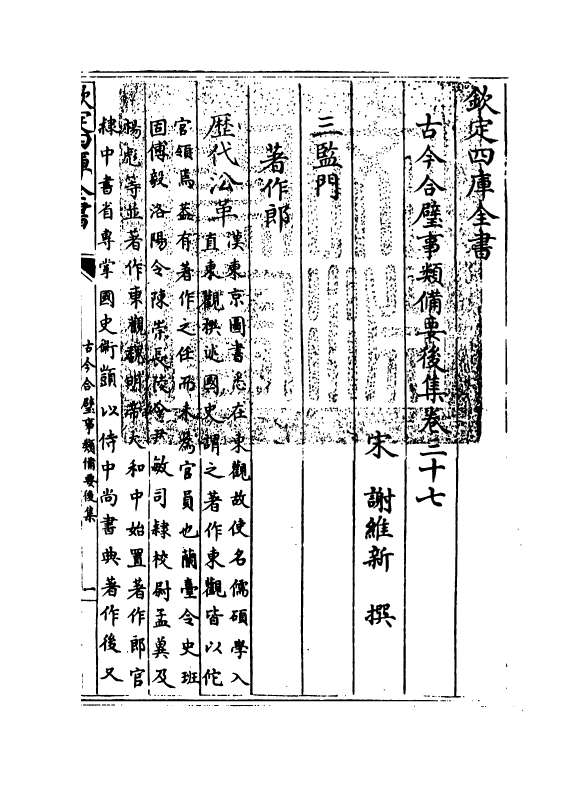 欽定四庫全書
古今合璧事類備要後集卷三十七
宋 謝維新 撰
三監門
著作郎
歴代沿革
漢東京圖書悉在東觀故使名儒碩學入
直東觀撰述國史謂之著作東觀皆以佗
官領焉蓋有著作之任而未為官員也蘭臺令史班
固傅毅洛陽令陳宗長陵令尹敏司隸校尉孟冀及
楊彪等並著作東觀魏明帝太和中始置著作郎官
隸中書省専掌國史衛顗以侍中尚書典著作後又
欽定四庫全書
古今合璧事類備要後集
一